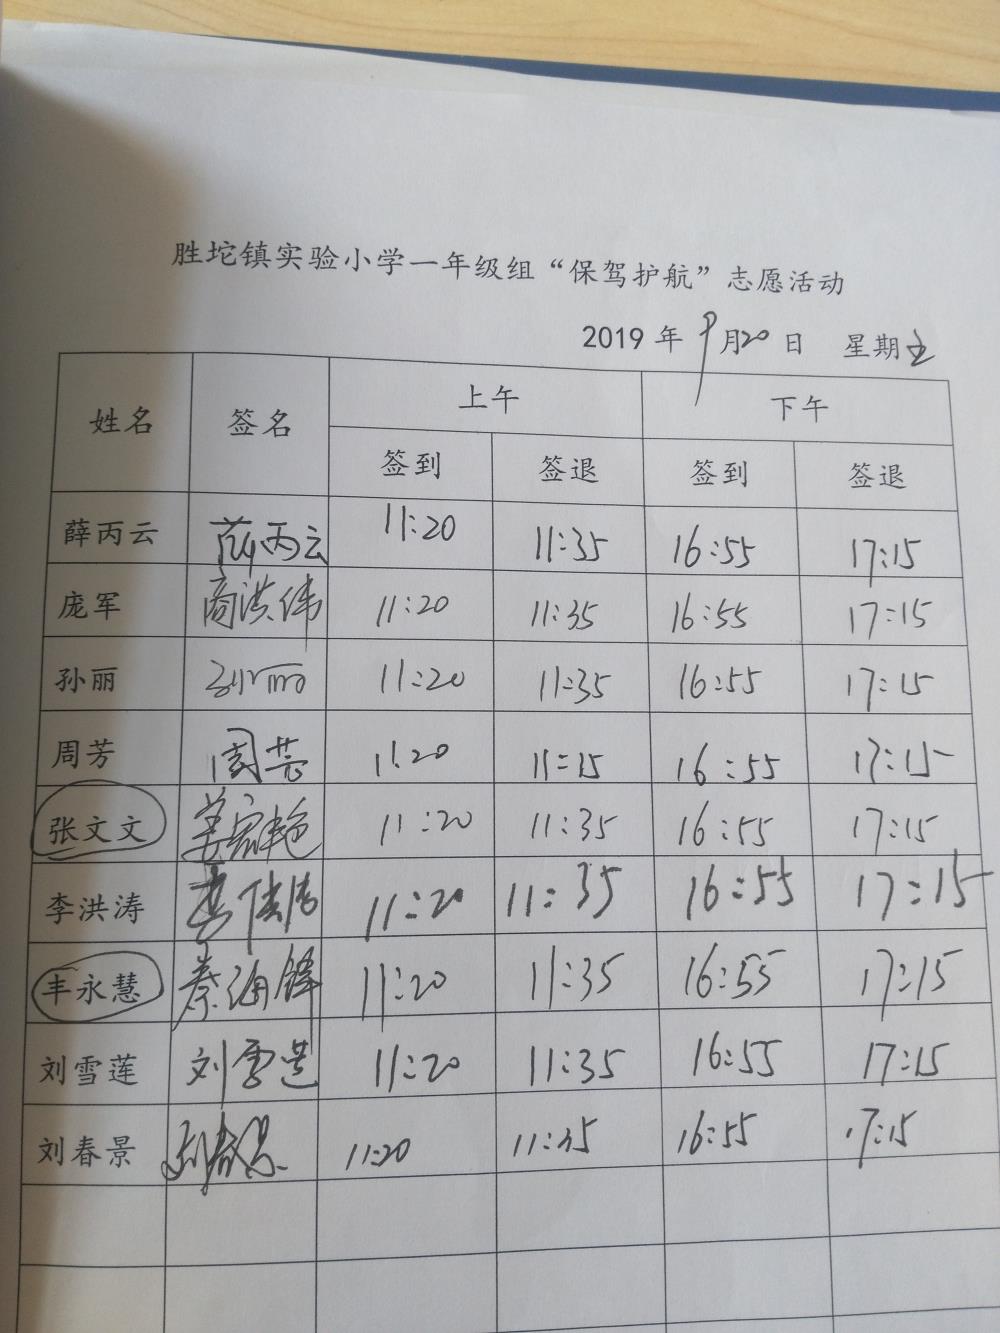 胜坨镇实验小学一年级组“保驾护航”志愿活动
2019 年 9月20日 星期五
姓名 签名 上午 下午
签到 签退 签到 签退
薛丙云 薛丙云 11:20 11:35 16:55 17:15
庞军 商洪伟 11:20 11:35 16:55 17:15
孙丽 孙丽 11:20 11:35 16:55 17:15
周芳 周芸 11:20 11:15 16:55 17:15
张文文 11:20 11:35 16:55 17:15
李洪涛 11:20 11:35 16:55 17:15
丰永慧 蔡海锋 11:20 11:35 16:55 17:15
刘雪莲 刘雪莲 11:20 11:35 16:55 17:15
刘春景 刘春景 11:20 11:35 16:55 17:15